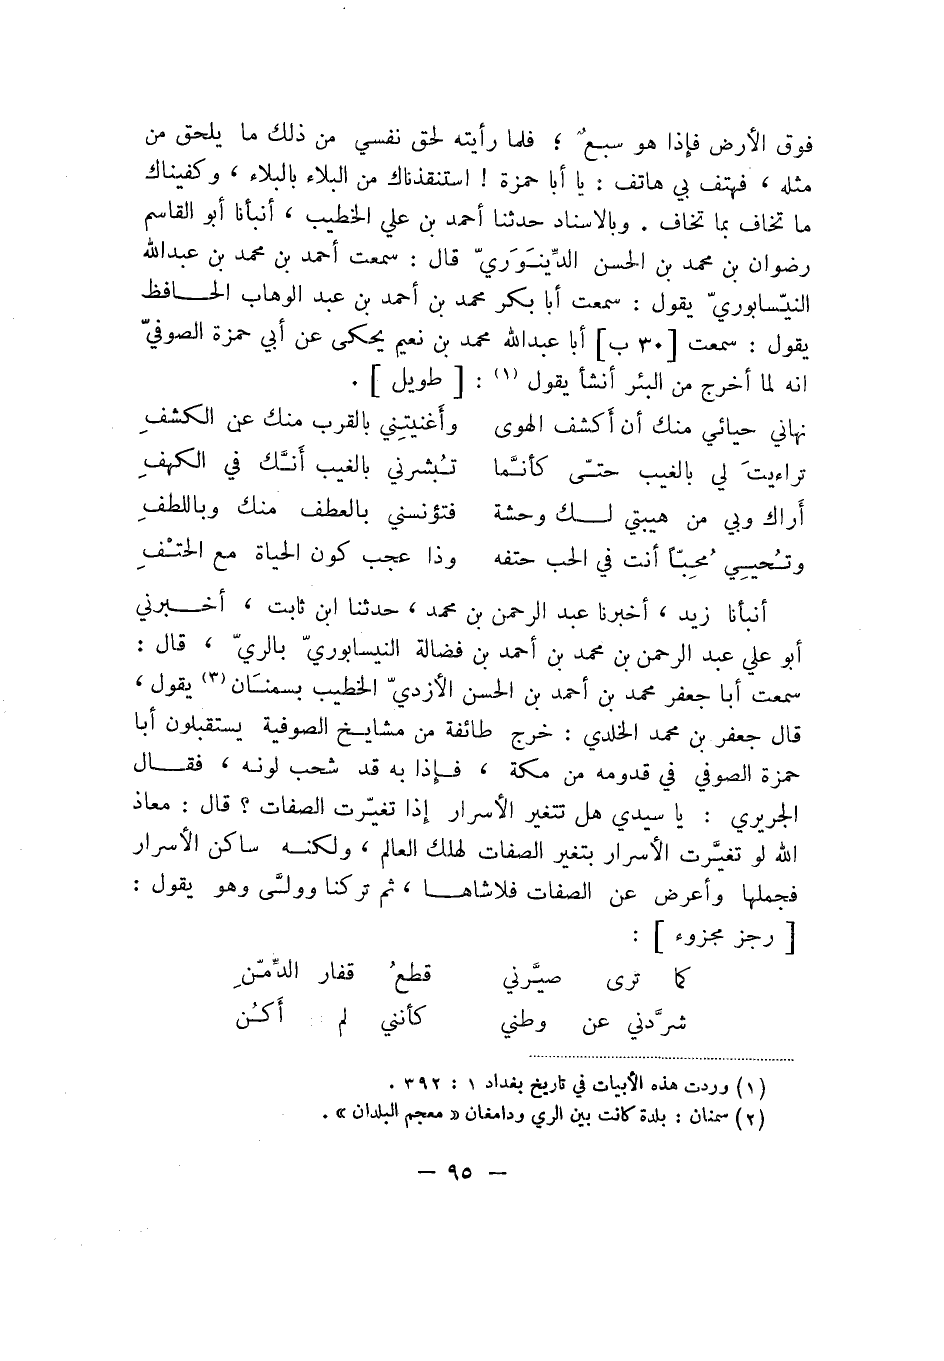 فوق الأرض فإذا هو سبعٌ ؛ فلما رأيته لحق نفسي من ذلك ما يلحق من
مثله ، فهتف بي هاتف : يا أبا حمزة ! استنقذناك من البلاء بالبلاء ، وكفيناك
ما تخاف بما تخاف . وبالاسناد حدثنا أحمد بن علي الخطيب ، أنبأنا أبو القاسم
رضوان بن محمد بن الحسن الدِّينَوَريّ قال : سمعت أحمد بن محمد بن عبدالله
النيّسابوريّ يقول : سمعت أبا بكر محمد بن أحمد بن عبد الوهاب الحافظ
يقول : سمعت [ ٣٠ ب ] أبا عبدالله محمد بن نعيم يحكى عن أبي حمزة الصوفيّ
انه لما أخرج من البئر أنشأ يقول (١) : [ طويل ] .
نهاني حيائي منك أن أكشف الهوى وأغنيتِني بالقرب منك عن الكشفِ
تراءيتَ لي بالغيب حتّى كأنَّما تُبشرني بالغيب أنَّك في الكهفِ
أراك وبي من هيبتي لك وحشة فتؤنسني بالعطف منك وباللطفِ
وتُحيي مُحِبّاً أنت في الحب حتفه وذا عجب كون الحياة مع الحتْفِ
أنبأنا زيد ، أخبرنا عبد الرحمن بن محمد ، حدثنا ابن ثابت ، أخبرني
أبو علي عبد الرحمن بن محمد بن أحمد بن فضالة النيسابوريّ بالريّ ، قال :
سمعت أبا جعفر محمد بن أحمد بن الحسن الأزديّ الخطيب بسمنَان (٣) يقول ،
قال جعفر بن محمد الخلدي : خرج طائفة من مشايخ الصوفية يستقبلون أبا
حمزة الصوفي في قدومه من مكة ، فإذا به قد شحب لونه ، فقال
الجريري : يا سيدي هل تتغير الأسرار إذا تغيّرت الصفات ؟ قال : معاذ
الله لو تغيَّرت الأسرار بتغير الصفات لهلك العالم ، ولكنه ساكن الأسرار
فجملها وأعرض عن الصفات فلاشاها ، ثم تركنا وولَّى وهو يقول :
[ رجز مجزوء ] :
كما ترى صيَّرني قطعُ قفار الدِّمَنِ
شرَّدني عن وطني كأنني لم أَكُن
(١) وردت هذه الأبيات في تاريخ بغداد ١ : ٣٩٢ .
(٢) سمنان : بلدة كانت بين الري ودامغان « معجم البلدان » .
— ٩٥ —